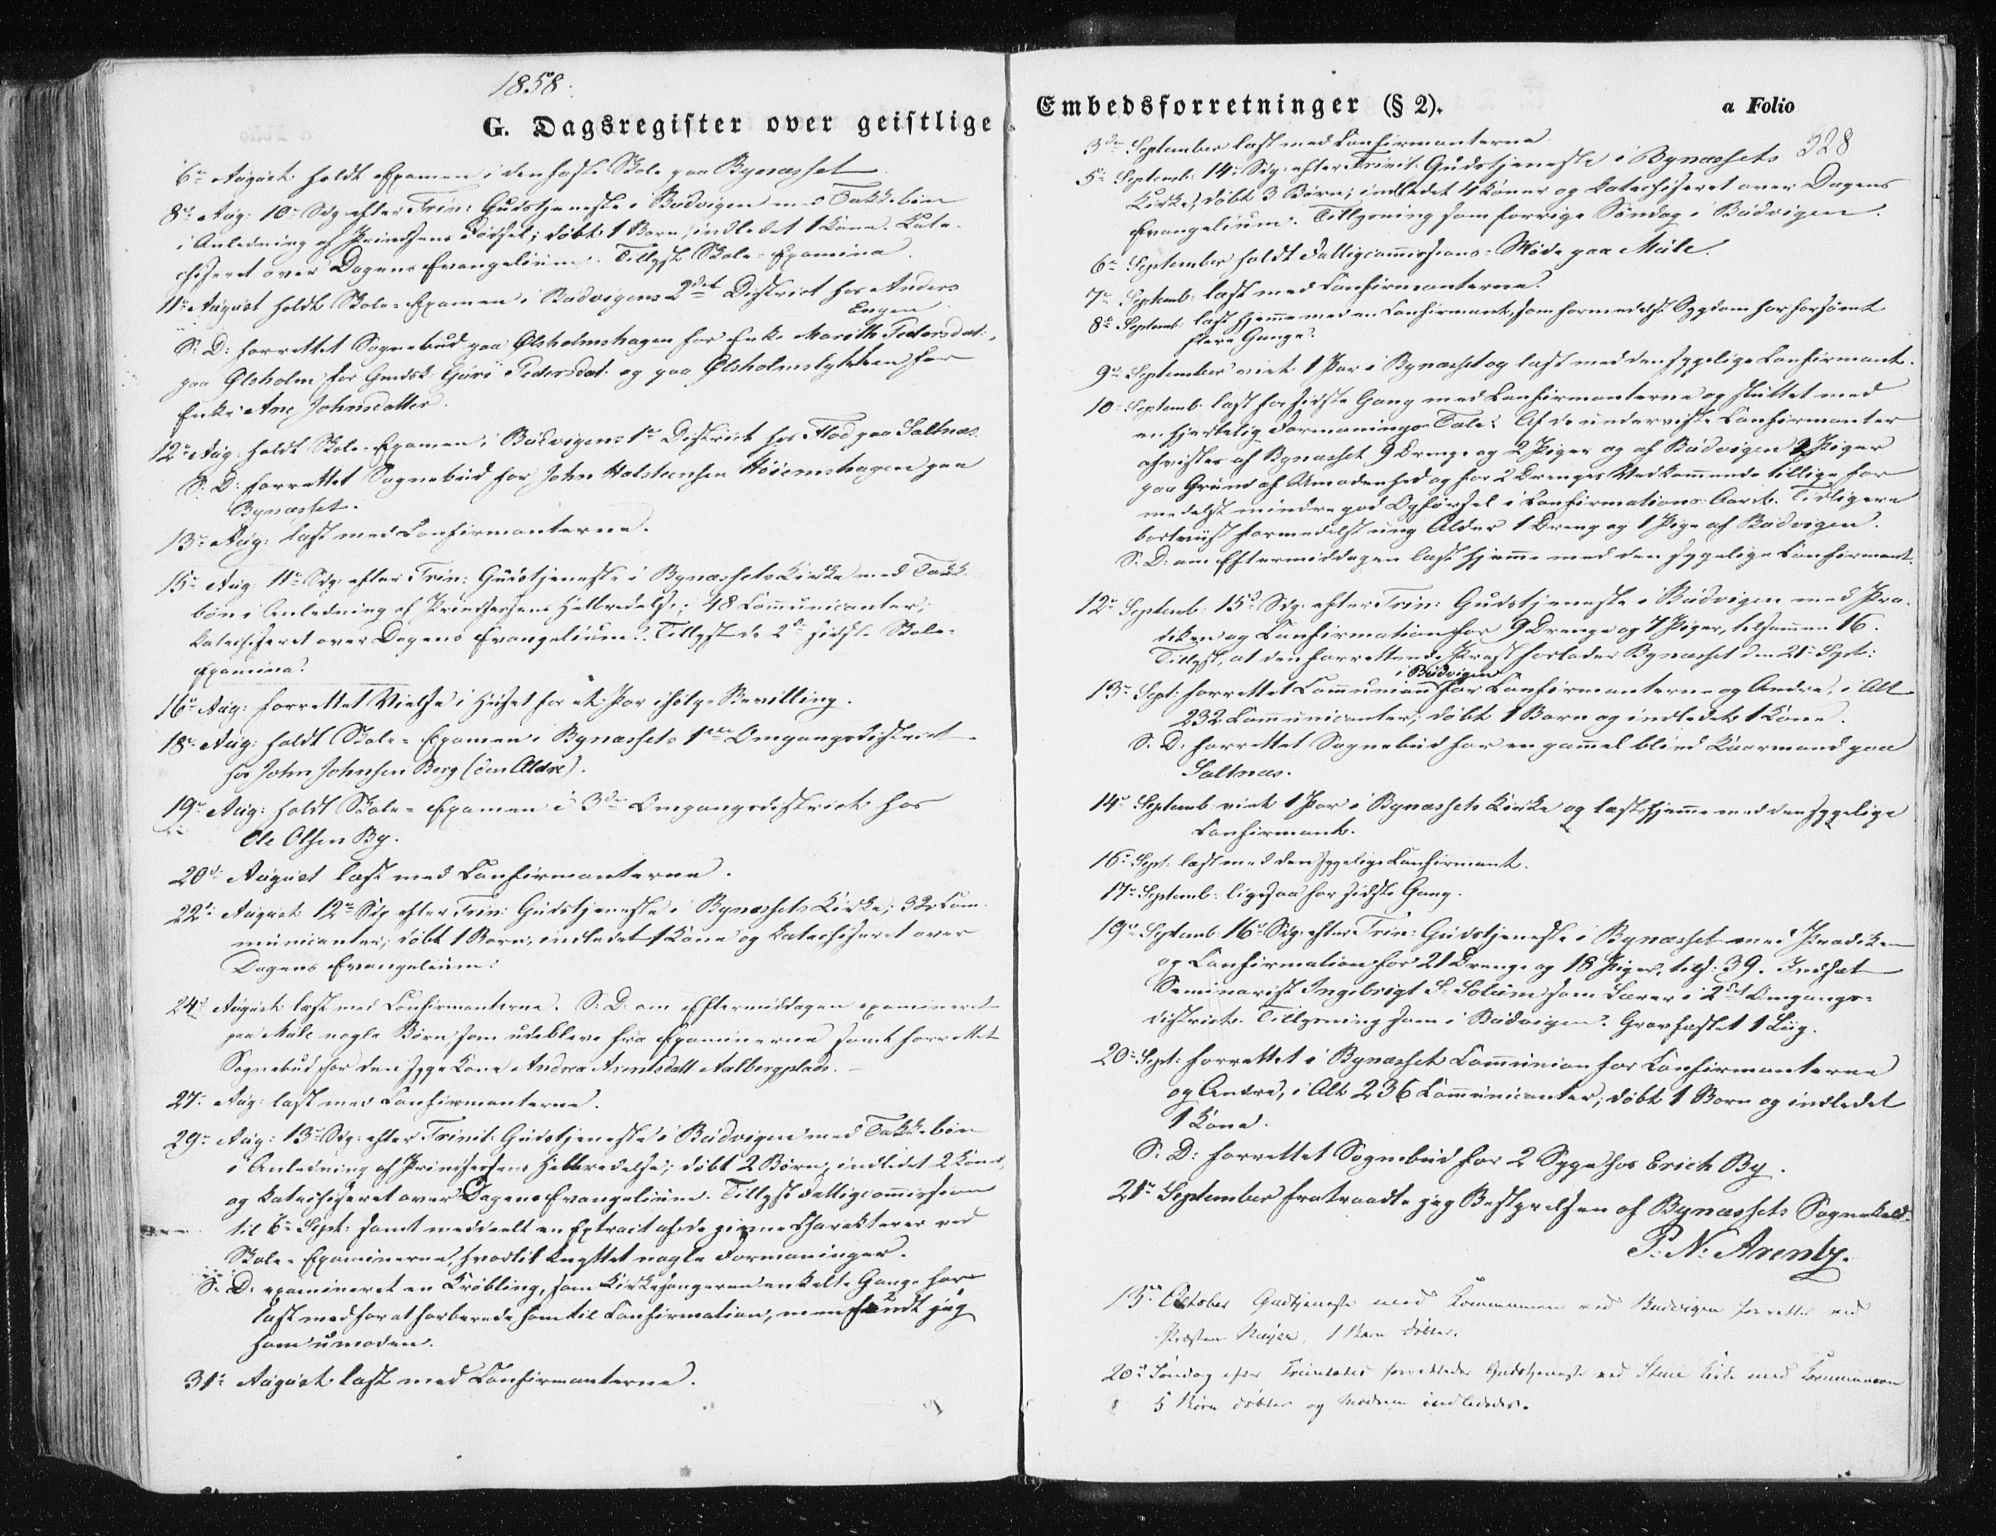 1858.
G. Dagsregister over geistlige
6te August holdt Examen i den faste Skole paa Bynæsset
8de Aug: 10de Sdg efter Trin: Gudstjeneste i Budvigen med Takkebøn
i Anledning af Prindsens Fødsel; døbt 1 Barn, indledet 1 Kone. Kate-
chiseret over Dagens Evangelium. Tillyst Skole-Examina.
11te August holdt Skole-Examen i Budvigens 2det District hos Anders
Engen
S: D: forrettet Sognebud paa Ølsholmshagen for Enke Marith Pedersdat:,
paa Ølsholm for Gmdsk. Guri Pedersdat. og paa Ølsholmslykken for
Enke Ane Johnsdatter.
12te Aug: holdt Skole-Examen i Budvigens 1ste District hos Flod paa Saltnæs.
S: D: forrettet Sognebud for John Halstensen Høiemshagen paa
Bynæsset.
13de Aug: læst med Confirmanterne.
15de Aug: 11te Sdg: efter Trin: Gudstjeneste i Bynæssets Kirke med Takke
bøn i Anledning af Prindsessens Helbredelse; 48 Communicanter;
katechiseret over Dagens Evangelium. Tillyst de 2de sidste Skole-
Examina.
16de Aug: forrettet Vielse i Huset for et Par ifølge Bevilling.
18de Aug: holdt Skole-Examen i Bynæssets 1ste Omgangsdistrict
hos John Johnsen Berg (den Ældre).
19de Aug: holdt Skole-Examen i 3die Omgangsdistrict hos
Ole Olsen By.
20de August læst med Confirmanterne.
22de August 12te Sdg efter Trin: Gudstjeneste i Bynæssets Kirke; 32 Com-
municanter; døbt 1 Barn, indledet 1 Kone og katechiseret over
Dagens Evangelium.
24de August læst med Confirmanterne. S: D: om Eftermiddagen examineret
paa Mule nogle Børn, som udebleve fra Examinerne samt forrettet
Sognebud for den syge Kone Andrea Arentsdatt Aalbergplads.
27de Aug: læst med Confirmanterne.
29de Aug: 13de Sdg: efter Trinit: Gudstjeneste i Budvigen med Takkebøn
i Anledning af Prindsessens Helbredelse; døbt 2 Børn, indledet 2 Koner,
og katechiseret over Dagens Evangelium. Tillyst Fattigcommission
til 6te Sept: samt meddeelt en Extract af de givne Charakterer ved
Skole-Examinerne, hvortil knyttet nogle Formaninger.
S: D: examineret en Krøbling, som Kirkesangeren enkelte Gange har
læst med for at forberede ham til Confirmation, men fandt jeg
ham umoden.
31te August læst med Confirmanterne.
Embedsforretninger (§ 2).
a Folio
328
3die September læst med Confirmanterne
5te Septemb: 14de Sdg: efter Trinit: Gudstjeneste i Bynæssets
Kirke, døbt 3 Børn; indledet 4 Koner og katechiseret over Dagens
Evangelium. Tillysning som forrige Søndag i Budvigen.
6te September holdt Fattigcommissions-Møde paa Mule.
7de Septemb: læst med Confirmanterne.
8de Septemb: læst hjemme med en Confirmant, som formedelst Sygdom har forsømt
flere Gange.
9de September viet 1 Par i Bynæsset og læst med den sygelige Confirmant.
10de Septemb: læst for sidste Gang med Confirmanterne og sluttet med
en hjertelig Formanings-Tale. Af de underviste Confirmanter
afvistes af Bynæsset 9 Drenge og 2 Piger og af Budvigen 2 Piger
paa Grund af Umodenhed og for 2 Drenges Vedkommende tillige for
medelst mindre god Opførsel i Confirmations-Aaret. Tidligere
bortviist formedelst ung Alder 1 Dreng og 1 Pige af Budvigen.
S: D: om Eftermiddagen læst hjemme med den sygelige Confirmant.
12te Septemb: 15de Sdg: efter Trin: Gudstjeneste i Budvigen med Præ-
diken og Confirmation for 9 Drenge og 7 Piger, tilsammen 16.
Tillyst, at den forrettende Præst forlader Bynæsset den 21de Sept:
13de Sept: forrettet Communion i Budvigen for Confirmanterne og Andre, i Alt
232 Communicanter; døbt 1 Barn og indledet 1 Kone.
S: D: forrettet Sognebud for en gammel blind Kaarmand paa
Saltnæs.
14de Septemb: viet 1 Par i Bynæssets Kirke og læst hjemme med den sygelige
Confirmant.
16de Sept: læst med den sygelige Confirmant.
17de Septemb: ligesaa for sidste Gang.
19de Septemb: 16de Sdg: efter Trin: Gudstjeneste i Bynæsset med Prædiken
og Confirmation for 21 Drenge og 18 Piger, tils: 39. Indsat
Seminarist Ingebrigt S. Solum som Lærer i 2det Omgangs-
district. Tillysning som i Budvigen. Gravfæstet 1 Liig.
20de Sept: forrettet i Bynæsset Communion for Confirmanterne
og Andre, i Alt 236 Communicanter; døbt 1 Barn og indledet
1 Kone.
S: D: forrettet Sognebud for 2 Syge hos Erich By.
21de September fratraadte jeg Bestyrelsen af Bynæssets Sognekald.
P. N. Arentz.
15de October Gudtjeneste med Kommunion ved Budvigen forrettet ved
Præsten 1 Barn døbtes.
20de Søndag efter Trinitatis forrettedes Gudstjeneste ved Kirke med Kommunion
5 Børn døbtes og Mødrene indlededes.